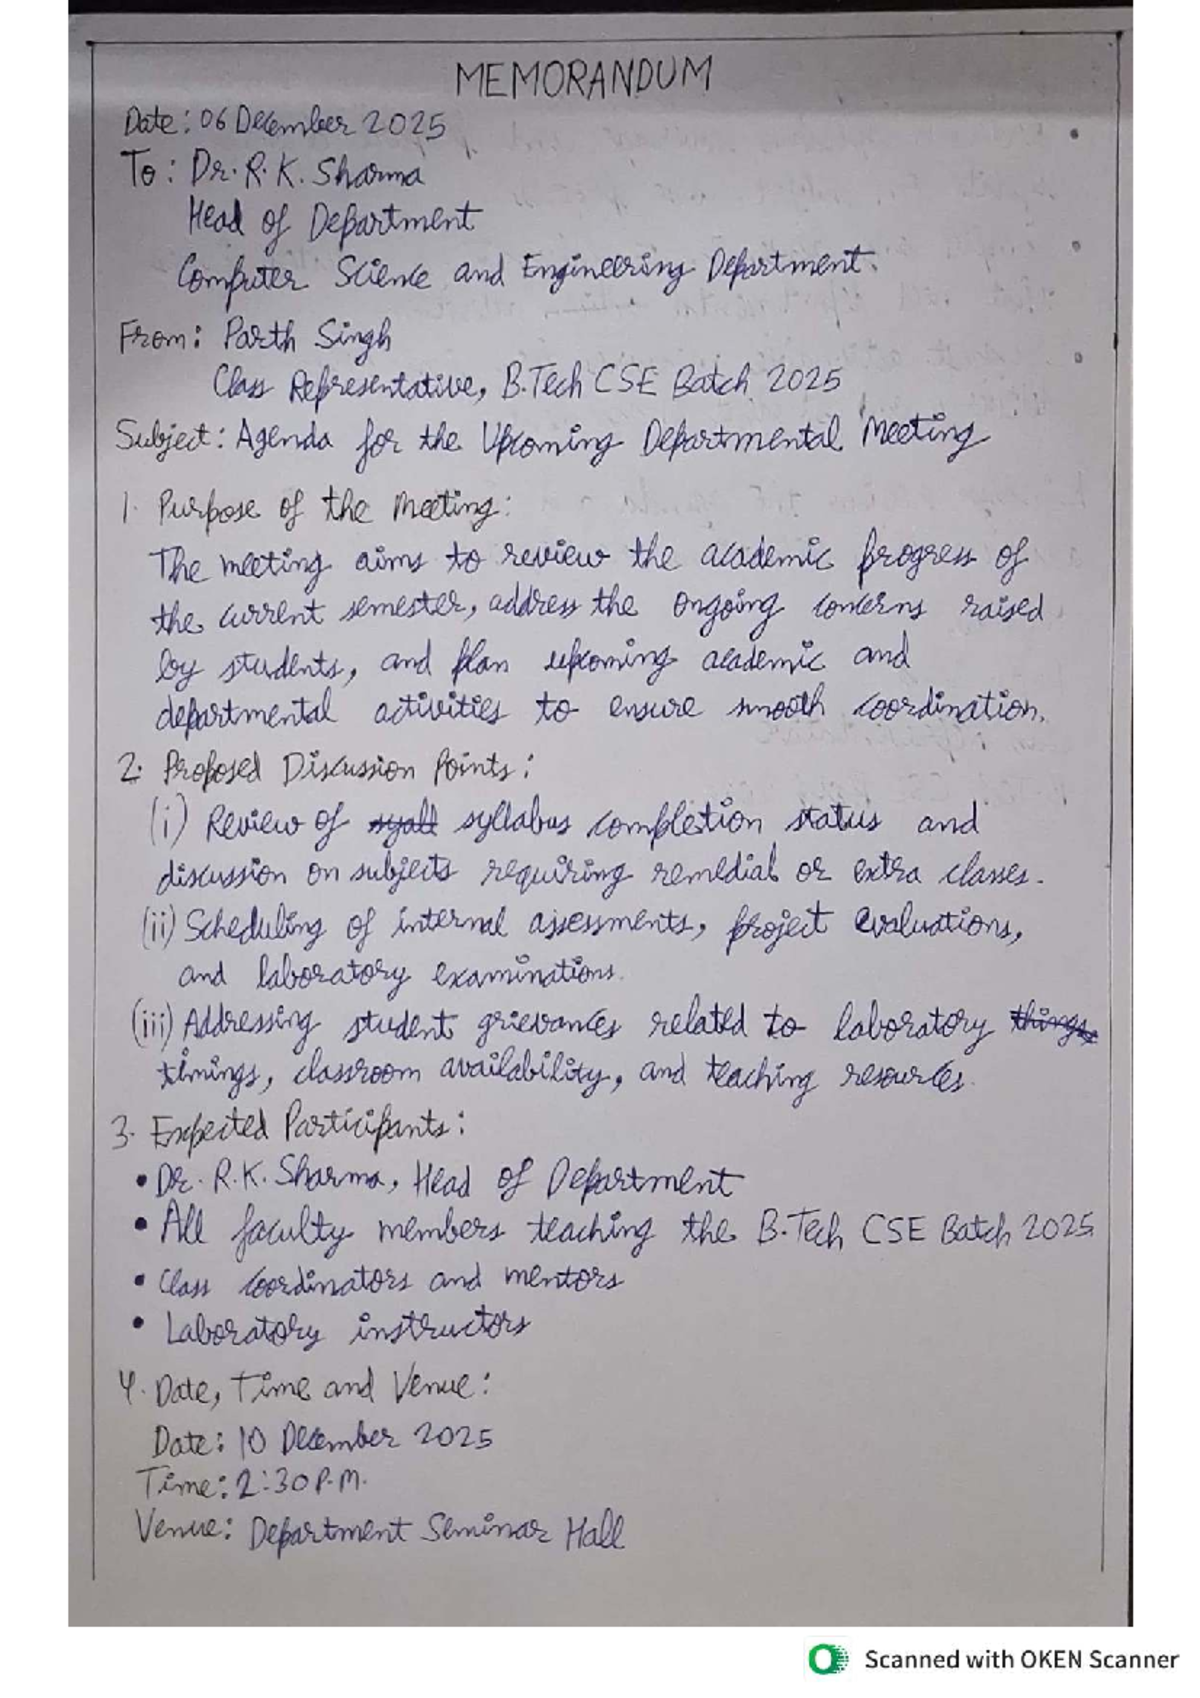 MEMORANDUM
Date: 06 December 2025
To: Dr. R. K. Sharma
Head of Department
Computer Science and Engineering Department.
From: Parth Singh
Class Representative, B.Tech CSE Batch 2025
Subject: Agenda for the Upcoming Departmental Meeting
1. Purpose of the Meeting:
The meeting aims to review the academic progress of
the current semester, address the ongoing concerns raised
by students, and plan upcoming academic and
departmental activities to ensure smooth coordination.
2. Proposed Discussion Points:
(i) Review of syall syllabus completion status and
discussion on subjects requiring remedial or extra classes.
(ii) Scheduling of internal assessments, project evaluations,
and laboratory examinations.
(iii) Addressing student grievances related to laboratory things
timings, classroom availability, and teaching resources.
3. Expected Participants:
• Dr. R.K. Sharma, Head of Department
• All faculty members teaching the B.Tech CSE Batch 2025
• Class coordinators and mentors
• Laboratory instructors
4. Date, Time and Venue:
Date: 10 December 2025
Time: 2:30 P.M.
Venue: Department Seminar Hall
Scanned with OKEN Scanner